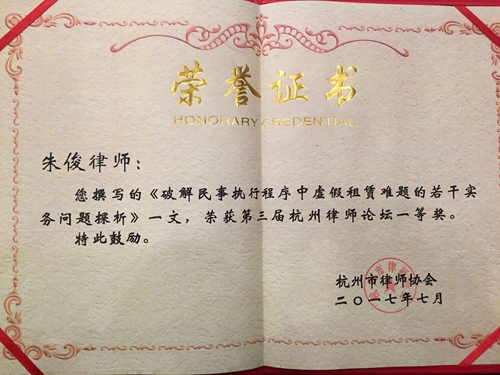 荣誉证书
HONORARY CREDENTIAL
朱俊律师：
您撰写的《破解民事执行程序中虚假租赁难题的若干实
务问题探析》一文，荣获第三届杭州律师论坛一等奖。
特此鼓励。
杭州市律师协会
二〇一七年七月